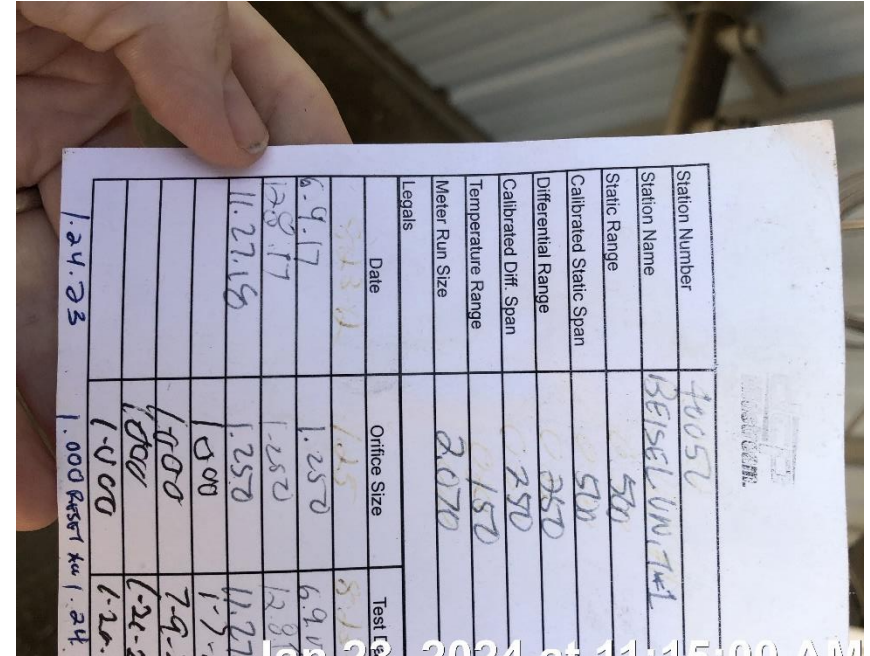 Station Number 40050
Station Name BEISEL UNIT #1
Static Range 0 500
Calibrated Static Span 0 500
Differential Range 0 250
Calibrated Diff. Span 0 250
Temperature Range 0 150
Meter Run Size 2.070
Legals
Date Orifice Size Test
1.25
6.9.17 1.250 6.9.
12.8.17 1.250 12.8.
11.27.18 1.250 11.27
1.000
1.000 7-9-
1.000
1.000
1.24.23 1.000 RESET 1.24
Jan 23, 2024 at 11:15:09 AM